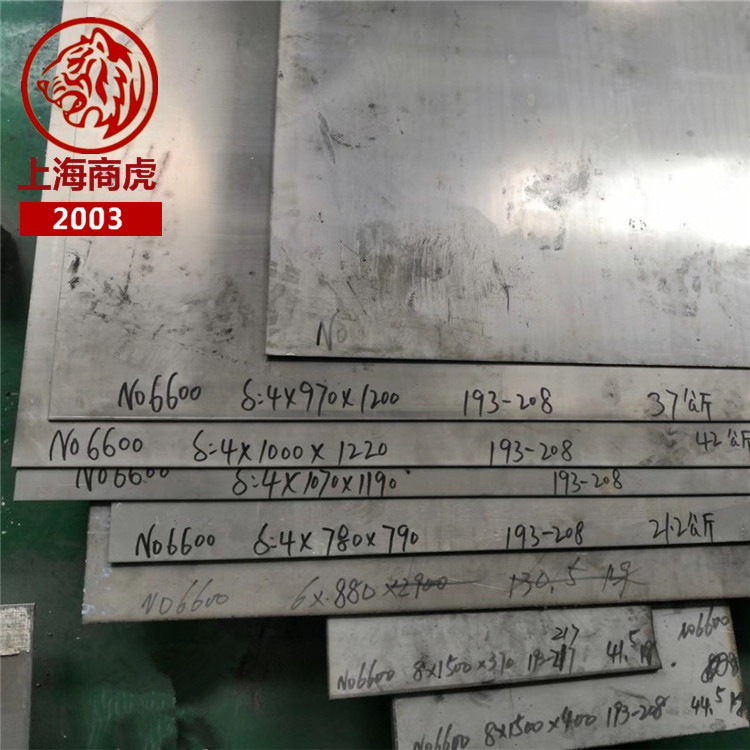 上海商虎
2003
No
No6600 δ:4×970×1200 193-208 37公斤
No6600 δ:4×1000×1220 193-208 42公斤
No6600 δ:4×1070×1190 193-208
No6600 δ:4×780×790 193-208 21.2公斤
No6600 6×880×2900 130.5
217
No6600 8×1500×370 193-217 41.5 kg
No6600
No6600 8×1500×400 193-208 44.5 kg